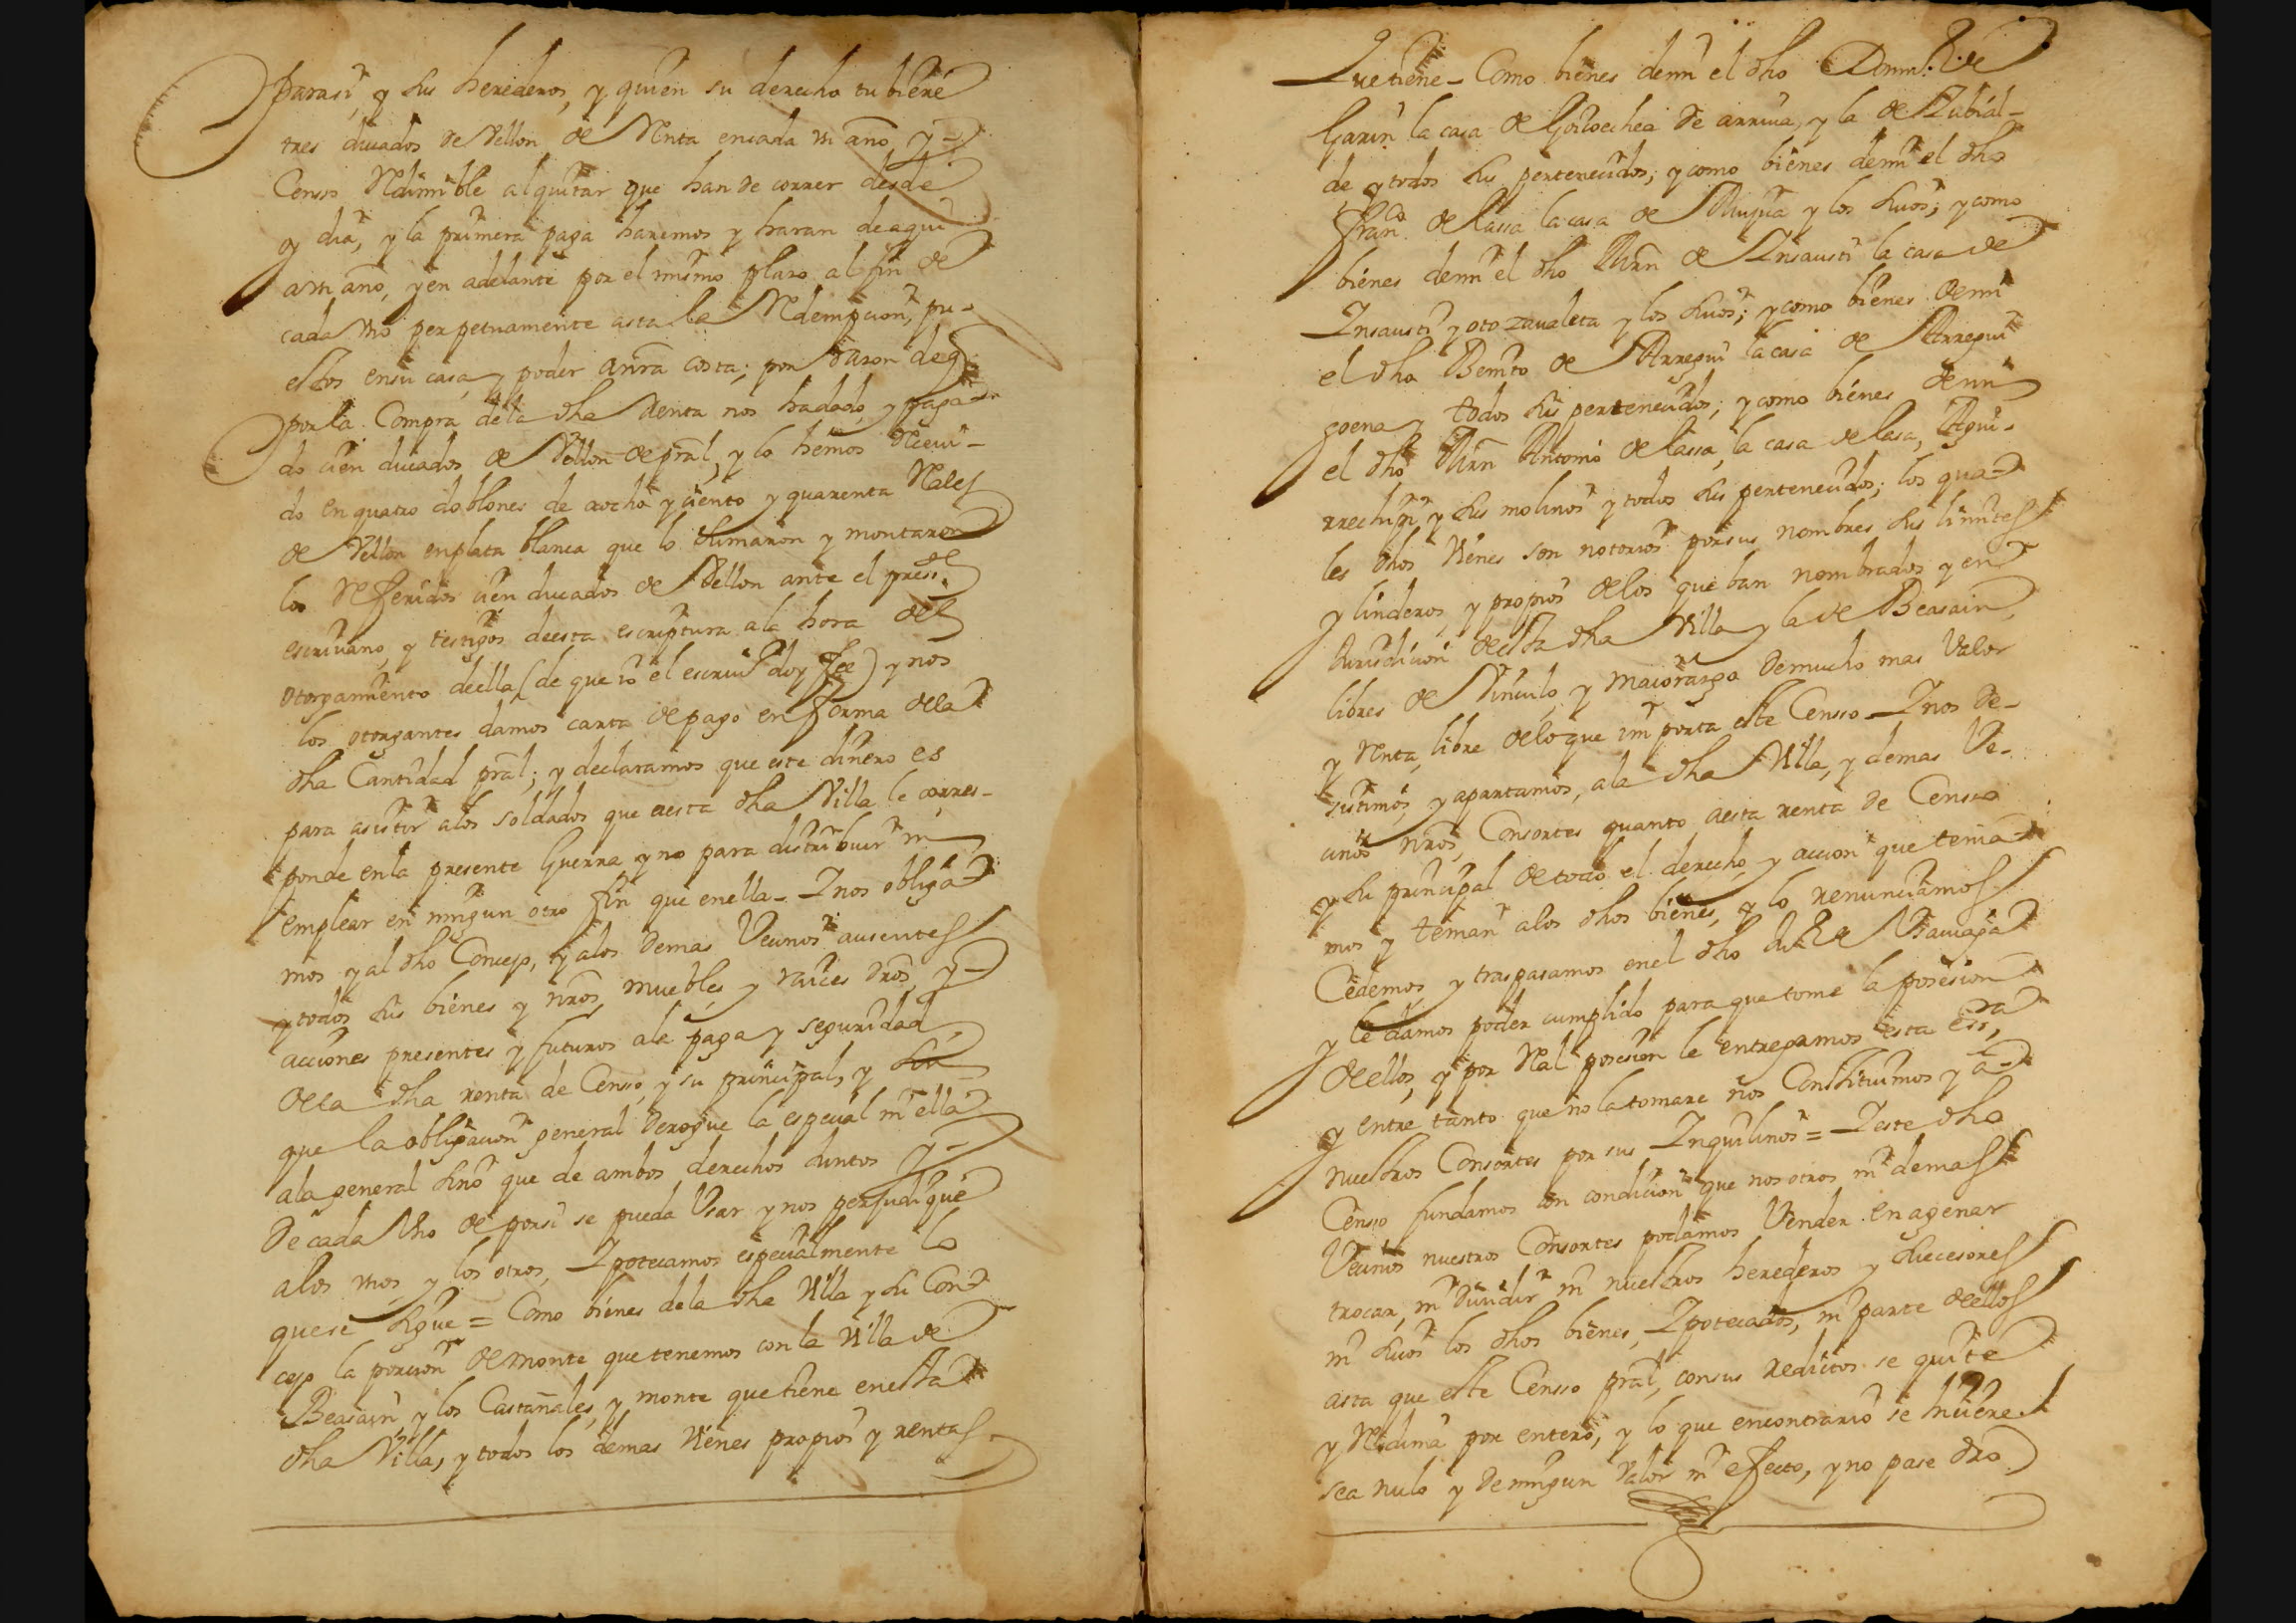 parasi, y sus herederos, y quien su derecho tubiere
tres ducados de Vellon de Renta encada un año, y
Censo Redimible alquitar que han de correr desde
oy dia, y la primera paga haremos y haran deaqui
aun año, yen adelante por el mismo plazo al fin de
cada uno perpetuamente asta la Redempcion, pu-
estos ensu casa, y poder anrã costa; por razon de q
porla Compra dela dha Renta nos hadado, y paga-
do cien ducados de Vellon de prãl, y lo hemos Receui-
do en quatro doblones de aocho y ciento y quarenta Rales
de Vellon enplata blanca que lo sumaron y montaron
los Referidos cien ducados de Vellon ante el presste
escriuano, y testigos deesta escriptura ala hora del
otorgamiento deella (de que io el escriuº doy fee) y nos
los otorgantes damos carta depago enforma dela
dha Cantidad prãl; y declaramos que este dinero es
para asistir alos soldados que aesta dha Villa le corres-
ponde enla presente Guerra y no para distribuir ni
emplear en ningun otro fin que enella - Inos obliga
mos yal dho Concejo, y alos demas Vecinos ausentes
ytodos sus bienes y nrõs, muebles y raices drõs, y
acciones presentes y futuros ala paga y seguridad
dela dha renta de Censo, y su principal, y sin
que la obligacion general derogue la especial ni ella
ala general sino que de ambos derechos Juntos y
de cada uno de porsi se pueda Usar y nos perjudique
alos unos, y los otros, Ipotecamos especialmente lo
quese sigue = Como bienes dela dha Villa y su Con
cejo la porcion demonte que tenemos con la Villa de
Beasain, y los Castañales, y monte que tiene enesta
dha Villa, y todos los demas Vienes propios y rentas
Quetiene - Como bienes demi el dho Domingo de
Garin la casa de Goicoechea de arriua, y la de Zubial-
de ytodos sus pertenecidos; y como bienes demi el dho
Franco de lassa la casa de Mujica y los suios; y como
bienes demi el dho Mrñ de Insausti la casa de
Insausti y otozaualeta y los suios; y como bienes demi
el dho Benito de Arregui la casa de Arregui
goena y todos sus pertenecidos; y como bienes demi
el dho Mrñ Antonio de lassa, la casa de lasa, Agui-
rrechipi y sus molinos y todos sus pertenecidos; los qua
les dhos Vienes son notorios por sus nombres sus limites
y linderos, y propios delos que ban nombrados y en
Jurisdicion desta dha Villa y la de Beasain,
libres de Vinculo, y maiorazgo demucho mas Valor
y Renta, libre deloque importa este Censso - Inos de-
sistimos, y apartamos, ala dha Villa, y demas Ve-
cinos nrõs, Consortes quanto aesta renta de Censso
y su principal detodo el derecho, y accion que tenia
mos y tenian alos dhos bienes, y lo renunciamos
Cedemos, y traspasamos enel dho
y le damos poder cumplido para que tome la posesion
deellos, y por Real posesion le entregamos esta essra
y entre tanto que no la tomare nos Constituimos y a
nuestros Consortes por sus Inquilinos = I este dho
Censso fundamos con condicion que nosotros ni demas
Vecinos nuestros Consortes podamos Vender enagenar
trocar, ni diuidir ni nuestros herederos y sucesores
ni suios los dhos bienes, Ipotecados, ni parte deellos
asta que este Censso prãl, consus reditos se quite
y Redima por entero, y lo que encontrario se hiciere
sea nulo y deningun Valor ni efecto, y no pase drõ